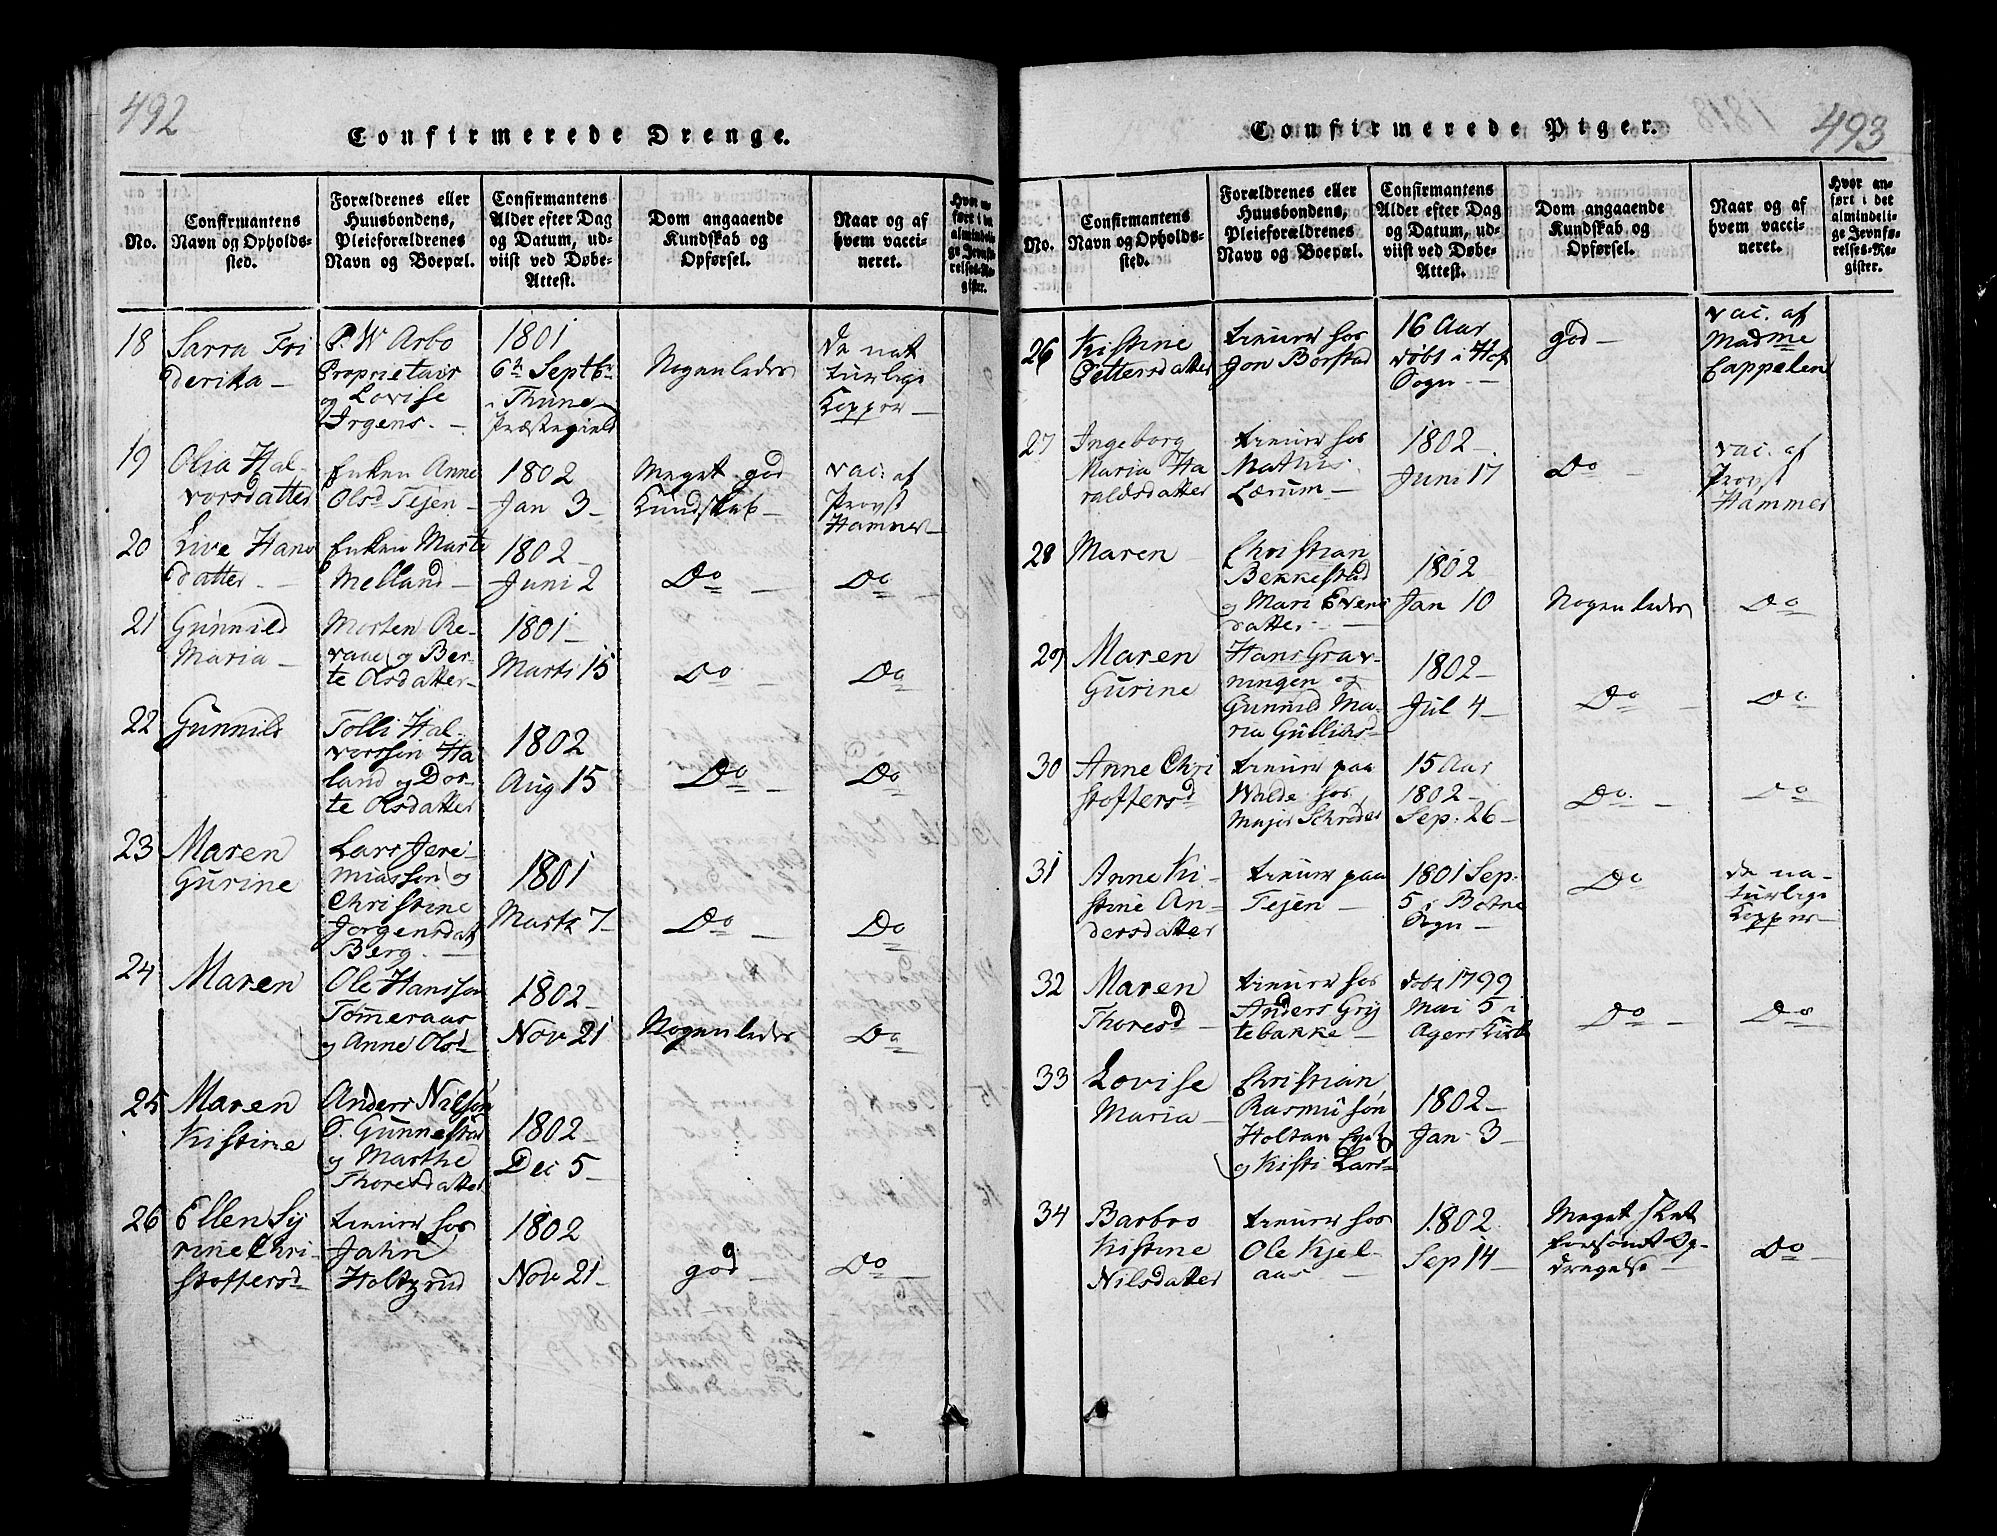 492
Confirmerede Drenge.
No.
Confirmantens
Navn og Opholds-
sted.
Forældrenes eller
Huusbondens,
Pleieforældrenes
Navn og Boepæl.
Confirmantens
Alder efter Dag
og Datum, ud-
viist ved Døbe-
Attest.
Dom angaaende
Kundskab og
Opførsel.
Naar og af
hvem vacci-
neret.
Hvor an-
ført i det
almindeli-
ge Jevnfø-
relses-Re-
gister.
18
Sarra Fri
derika –
P. W Arbo
Proprietair
og Lovise
Irgens. –
1801
6te Septbr
i Thune
Præstegield
Nogenledes
De nat
turlige
Kopper –
19
Olia Hal-
vorsdatter
Enken Anne
Olsd Tejen –
1802
Jan 3 –
Meget god
Kundskab –
vac. af
Provst
Hammer –
20
Live Hans
datter. –
Enken Marte
Melland –
1802 –
Juni 2
Do –
Do –
21
Gunnild
Maria –
Morten Re-
vaae og Ber-
te Olsdatter –
1801 –
Marts 15
Do –
Do
22
Gunnild
Tolli Hal-
vorssen Ha
land og Dor-
te Olsdatter
1802
Aug 15
Do –
Do
23
Maren
Gurine
Lars Jere-
miassen og
Christine
Jorgensdat
Berg. –
1801
Marts 7 –
Do –
Do
24
Maren
Ole Hanssen
Tømeraas
og Anne Olsd –
1802 –
Nov 21
Nogenledes
Do
25
Maren
Kistine
Anders Nilsøn
S. Gunnestad
og Marthe
Thoresdatter
1802 –
Dec 5 –
26
Ellen Sy
rine Chri-
stoffersd –
tiener hos
Jahn
Holtzrud
1802
Nov 21 –
god –
Do –
493
Confirmerede Piger.
No.
Confirmantens
Navn og Opholds-
sted.
Forældrenes eller
Huusbondens,
Pleieforældrenes
Navn og Boepæl.
Confirmantens
Alder efter Dag
og Datum, ud-
viist ved Døbe-
Attest.
Dom angaaende
Kundskab og
Opførsel.
Naar og af
hvem vacci-
neret.
Hvor an-
ført i det
almindeli-
ge Jevnfø-
relses-Re-
gister.
26
Kistine
Pettersdatter
tiener hos
Jon Borstad
16 Aar
døbt i Hof
Sogn – –
god –
vac. af
Madme
Cappelen
27
Ingeborg
Maria Ha
raldsdatter
tiener hos
Mathis
Lærum –
1802 –
Juni 17
Do –
vac. af
Provst
Hammer
28
Maren –
Christian
Bekkestad
og Mari Evens
datter – –
1802
Jan 10
Nogenledes
Do
29
Maren
Gurine
Hans Grav-
ningen og
Gunnild Ma-
ria Gulliksd –
1802 –
Jul 4 –
Do –
Do
30
Anne Chri
stoffersd
tiener paa
Walde hos
Major Schrøder
15 Aar
1802 –
Sep. 26 –
Do. –
Do
31
Anne Ki-
stine An-
dersdatter
tiener paa
Tejen –
1801 Sep.
5 i Botne
Sogn –
Do
de na-
turlige
Kopper –
32
Maren
Thoresd –
tiener hos
Anders Gry
tebakke –
døbt 1799
Mai 5 i
Agers Kirke
Do –
Do –
33
Lovise
Maria –
Christian
Rasmusøn
Holtan
og Kisti Lars –
1802 –
Jan. 3 –
34
Barbro
Kistine
Nilsdatter
tiener hos
Ole Kjel-
aas –
1802
Sep 14 –
Meget slet
forsømt Op-
dragelse –
Do –